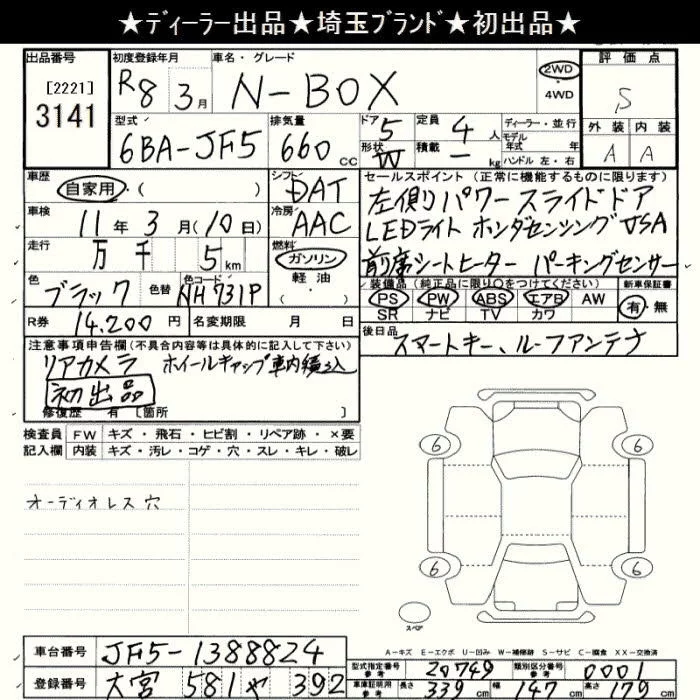 ★ディーラー出品★埼玉ブランド★初出品★
出品番号 [2221] 3141
初度登録年月 R8年3月
車名・グレード N-BOX
2WD・4WD
評価点 S
外装 A 内装 A
型式 6BA-JF5
排気量 660cc
ドア 5 形状 W
定員 4人
積載 - kg
ディーラー・並行
モデル年式 年
ハンドル 左・右
車歴 自家用・( )
シフト DAT
車検 11年3月(10日)
冷房 AAC
走行 万千5km
燃料 ガソリン・軽油・( )
色 ブラック 色替 色コード NH731P
R券 14,200円 名変期限 月 日
セールスポイント(正常に機能するものに限ります)
左側パワースライドドア
LEDライト ホンダセンシング USA
前席シートヒーター パーキングセンサー
装備品(純正品に限り○をつけてください) 新車保証書
PS PW ABS エアB AW 有・無
SR ナビ TV カワ
後日品 スマートキー、ルーフアンテナ
注意事項申告欄(不具合内容等は具体的に記入して下さい)
リアカメラ ホイールキャップ車内積込
初出品
修復歴 有 [箇所 ]
検査員 FW キズ・飛石・ヒビ割・リペア跡・×要
記入欄 内装 キズ・汚レ・コゲ・穴・スレ・キレ・破レ
オーディオレス穴
6 6
6 6
スペア
A-キズ E-エクボ U-凹み W-補修跡 S-サビ C-腐食 XX-交換済
車台番号 JF5-1388824
型式指定番号 参考 20749 類別区分番号 参考 0001
登録番号 大宮 581 や 392
車庫証明用 参考 長さ 339cm 幅 147cm 高さ 179cm